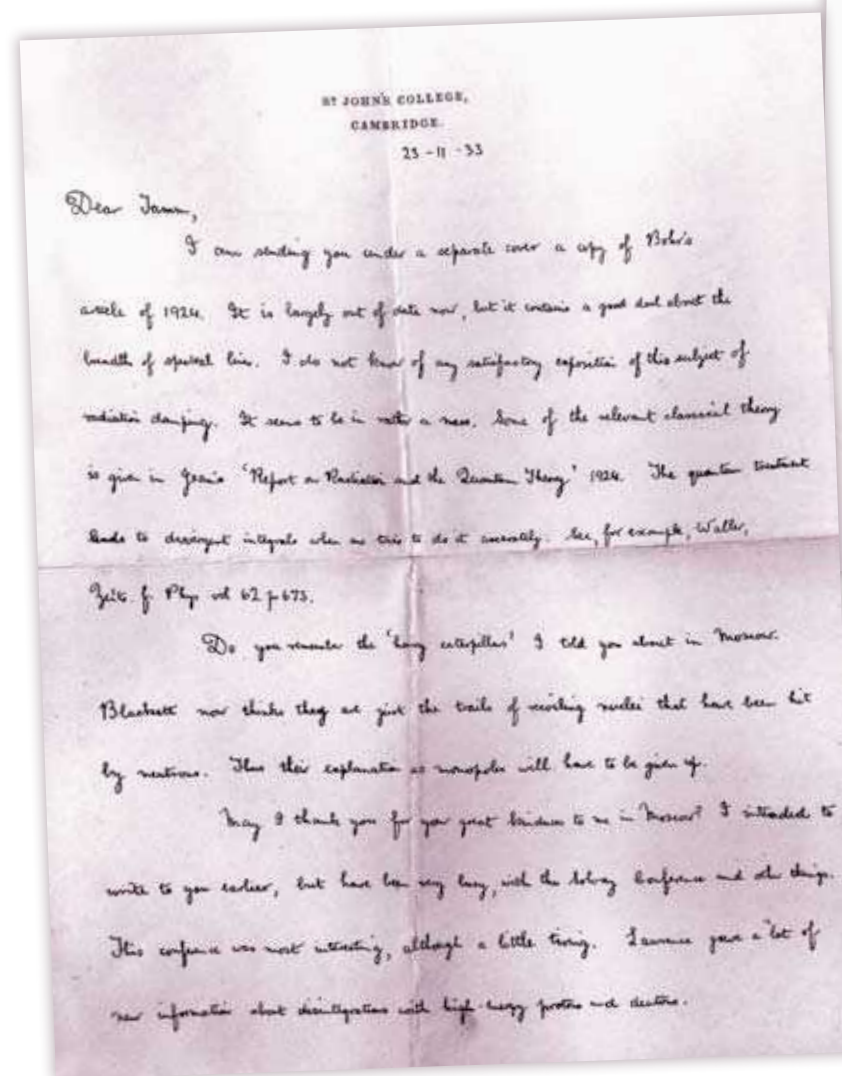 ST JOHN'S COLLEGE,
CAMBRIDGE.
23-11-33
Dear Tamm,
I am sending you under a separate cover a copy of Bohr's
article of 1924. It is largely out of date now, but it contains a good deal about the
breadth of spectral lines. I do not know of any satisfactory exposition of this subject of
radiation damping. It seems to be in rather a mess. Some of the relevant classical theory
is given in Jeans's 'Report on Radiation and the Quantum Theory' 1924. The quantum treatment
leads to divergent integrals when one tries to do it accurately. See, for example, Waller,
Zeits. f. Phys vol 62 p 673.
Do you remember the 'hairy caterpillars' I told you about in Moscow.
Blackett now thinks they are just the trails of recoiling nuclei that have been hit
by neutrons. Thus their explanation as monopoles will have to be given up.
May I thank you for your great kindness to me in Moscow? I intended to
write to you earlier, but have been very busy, with the Solvay Conference and other things.
This conference was most interesting, although a little tiring. Lawrence gave a lot of
new information about disintegrations with high-energy protons and deutons.